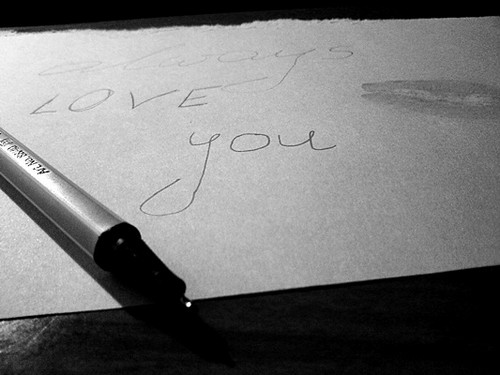 always
LOVE
you